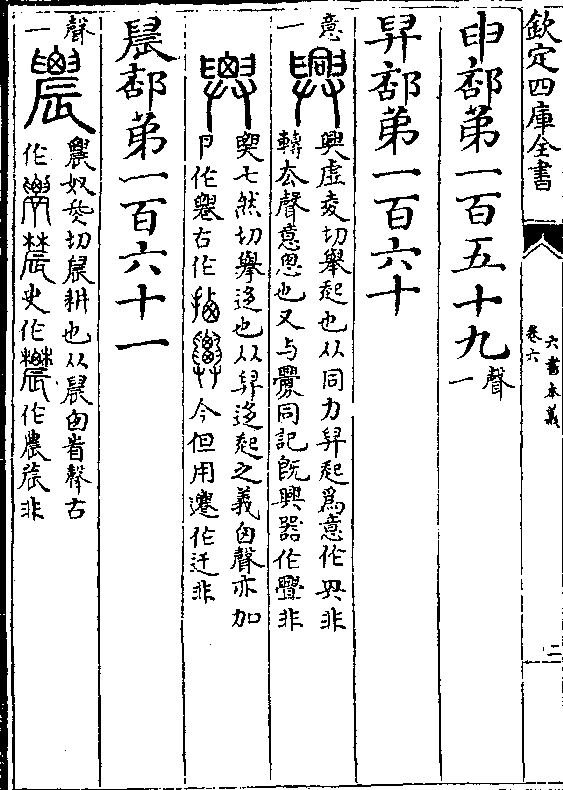 欽定四庫全書
六書本義
卷六
二
申部第一百五十九
聲一
舁部第一百六十
意一
興虛夌切舉起也从同力舁起爲意作㒷非
轉去聲意思也又与釁同記既興器作舋非
䙴七然切舉迻也从舁迻起之義囟聲亦加
卪作䙴古作拪今但用遷作迁非
晨部第一百六十一
聲一
農奴冬切晨耕也从晨囟省聲古
作䢉史作作農莀非